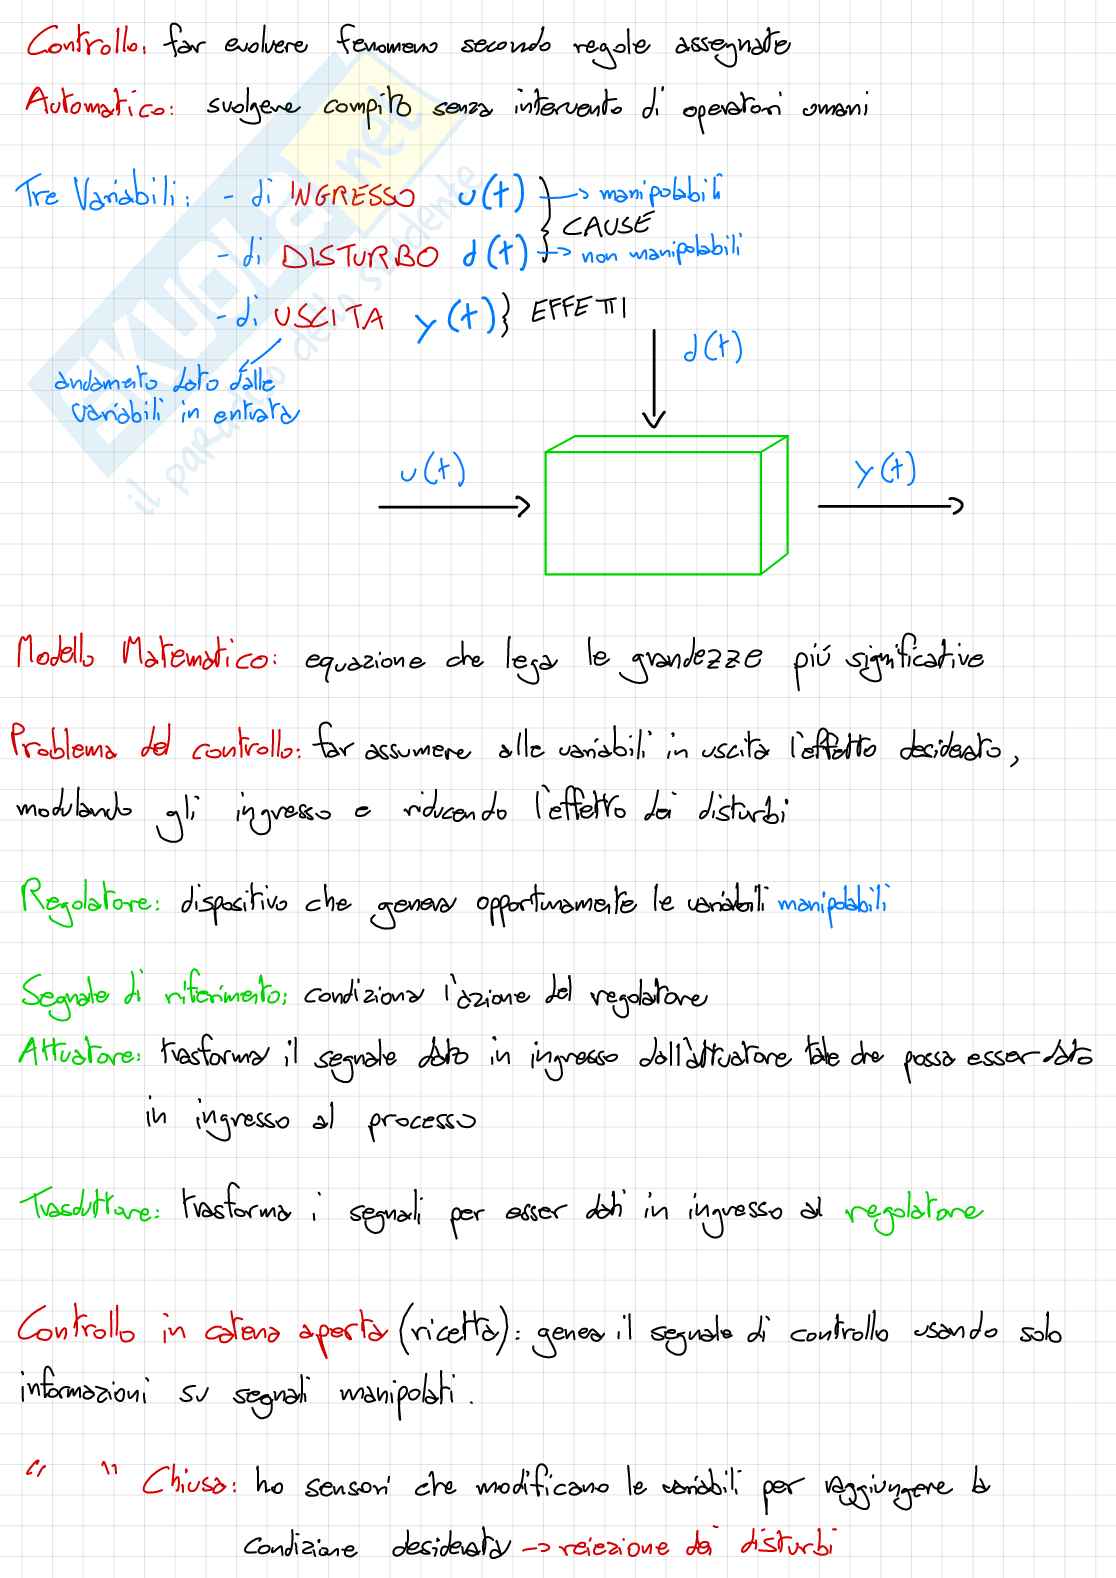 Controllo: far evolvere fenomeno secondo regole assegnate
Automatico: svolgere compito senza intervento di operatori umani
Tre Variabili: - di INGRESSO u(t) } → manipolabili
CAUSE
- di DISTURBO d(t) → non manipolabili
- di USCITA y(t) } EFFETTI
d(t)
andamento dato dalle
variabili in entrata
u(t)
y(t)
Modello Matematico: equazione che lega le grandezze più significative
Problema del controllo: far assumere alle variabili in uscita l'effetto desiderato,
modulando gli ingresso e riducendo l'effetto dei disturbi
Regolatore: dispositivo che genera opportunamente le variabili manipolabili
Segnale di riferimento: condiziona l'azione del regolatore
Attuatore: trasforma il segnale dato in ingresso dall'attuatore tale che possa esser dato
in ingresso al processo
Trasduttore: trasforma i segnali per esser dati in ingresso al regolatore
Controllo in catena aperta (ricetta): genera il segnale di controllo usando solo
informazioni su segnali manipolati.
" " Chiusa: ho sensori che modificano le variabili per raggiungere la
condizione desiderata → reiezione dei disturbi
SKUOLA.net
il paradiso dello studente